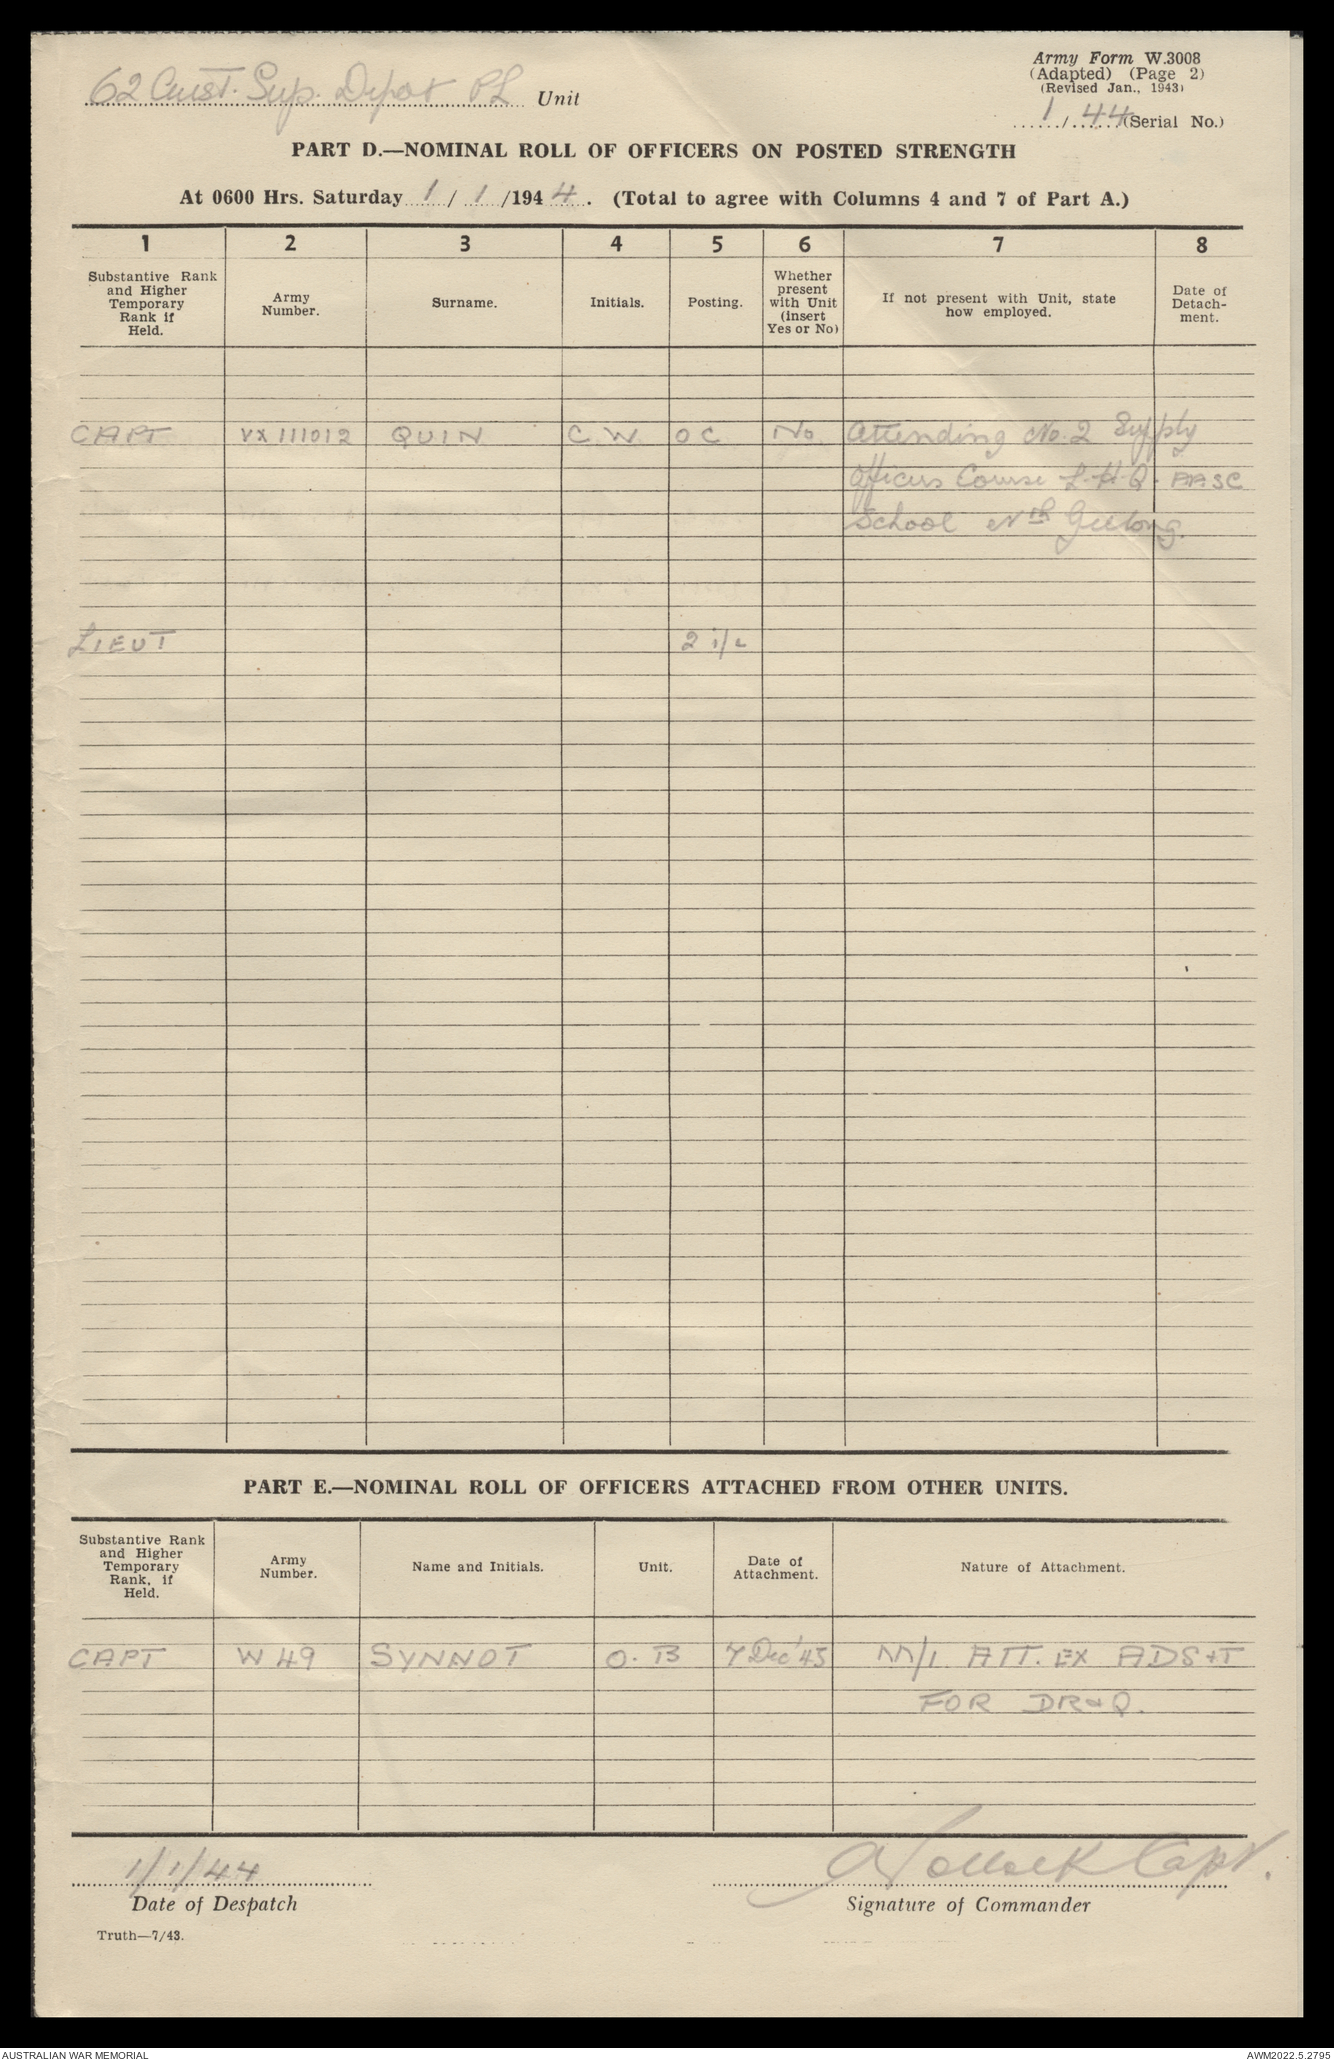 Army Form W.3008
(Adapted) (Page 2)
(Revised Jan., 1943)
62 Aust. Sup. Depot PL Unit
1/44 (Serial No.)
PART D.—NOMINAL ROLL OF OFFICERS ON POSTED STRENGTH
At 0600 Hrs. Saturday 1/1/1944. (Total to agree with Columns 4 and 7 of Part A.)
1 2 3 4 5 6 7 8
Substantive Rank and Higher Temporary Rank if Held.
Army Number.
Surname.
Initials.
Posting.
Whether present with Unit (insert Yes or No)
If not present with Unit, state how employed.
Date of Detachment.
CAPT VX 111012 QUIN C W OC No Attending No. 2 Supply
Officers Course L.H.Q. AASC
School Nth Geelong.
LIEUT 2 i/c
PART E.—NOMINAL ROLL OF OFFICERS ATTACHED FROM OTHER UNITS.
Substantive Rank and Higher Temporary Rank, if Held.
Army Number.
Name and Initials.
Unit.
Date of Attachment.
Nature of Attachment.
CAPT W 49 SYNNOT O. B 7 Dec '43 M/I ATT. EX ADS+T
FOR DR+Q.
1/1/44
Capt.
Date of Despatch
Signature of Commander
Truth—7/43.
AUSTRALIAN WAR MEMORIAL
AWM2022.5.2795